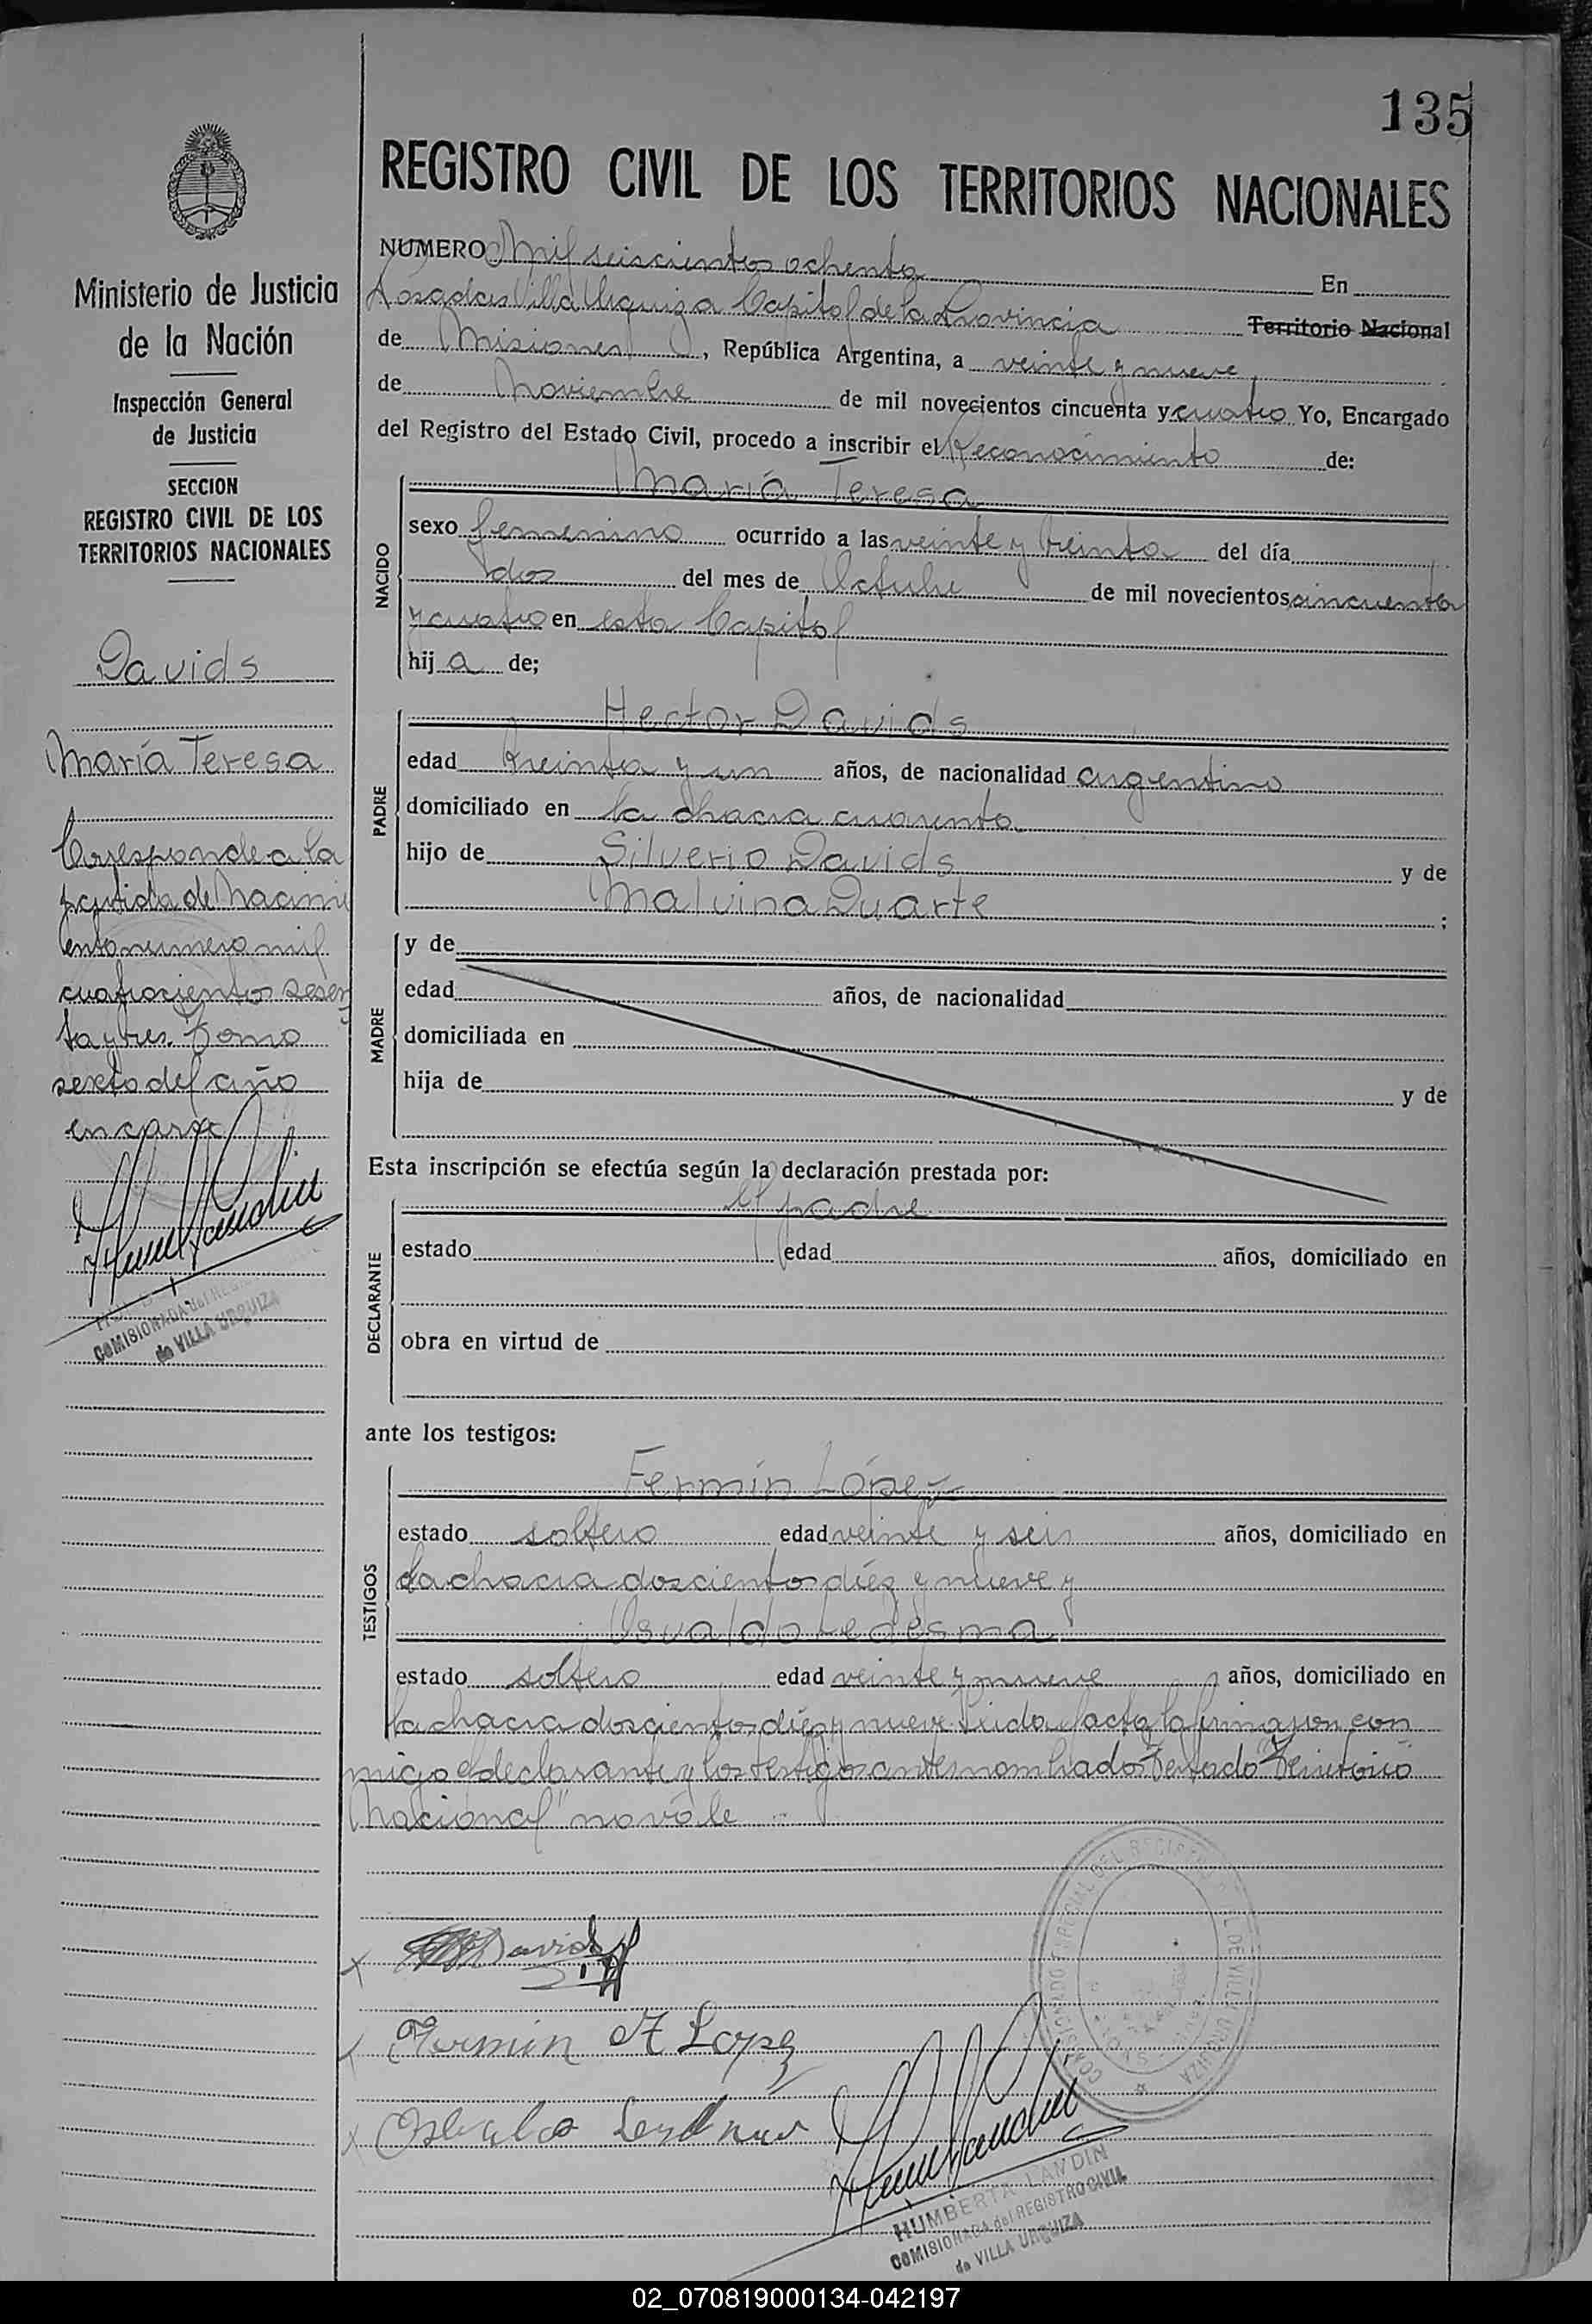 135
REGISTRO CIVIL DE LOS TERRITORIOS NACIONALES
Ministerio de Justicia
de la Nación
Inspección General
de Justicia
SECCION
REGISTRO CIVIL DE LOS
TERRITORIOS NACIONALES
Davids
María Teresa
Corresponde a la
partida de Nacimi
ento numero mil
cuatrocientos sesen
ta y tres. Tomo
sexto del año
en curso
COMISIONADA del REG
de VILLA URQUIZA
NUMERO Mil seiscientos ochenta En
Posadas Villa Urquiza Capital de la Provincia Territorio Nacional
de Misiones, República Argentina, a veinte y nueve
de Noviembre de mil novecientos cincuenta y cuatro Yo, Encargado
del Registro del Estado Civil, procedo a inscribir el Reconocimiento de:
NACIDO
María Teresa
sexo femenino ocurrido a las veinte y treinta del día
dos del mes de Octubre de mil novecientos cincuenta
y cuatro en esta Capital
hij a de;
PADRE
Hector Davids
edad treinta y un años, de nacionalidad argentino
domiciliado en la chacra cuarenta
hijo de Silverio Davids y de
Malvina Duarte ;
MADRE
y de
edad años, de nacionalidad
domiciliada en
hija de y de
Esta inscripción se efectúa según la declaración prestada por:
DECLARANTE
el padre
estado edad años, domiciliado en
obra en virtud de
ante los testigos:
TESTIGOS
Fermín López
estado soltero edad veinte y seis años, domiciliado en
la chacra doscientos diéz y nueve y
Osvaldo Ledesma
estado soltero edad veinte y nueve años, domiciliado en
la chacra doscientos diéz y nueve. Leída el acta la firmaron con
migo el declarante y los testigos antes nombrados Testado "Territorio
Nacional" no vale
Davids
Fermin A Lopez
Osvaldo
COMISIONADO ESPECIAL DEL REGISTRO CIVIL DE VILLA URQUIZA
HUMBERTA LANDIN
COMISIONADA del REGISTRO CIVIL
de VILLA URQUIZA
02_070819000134-042197